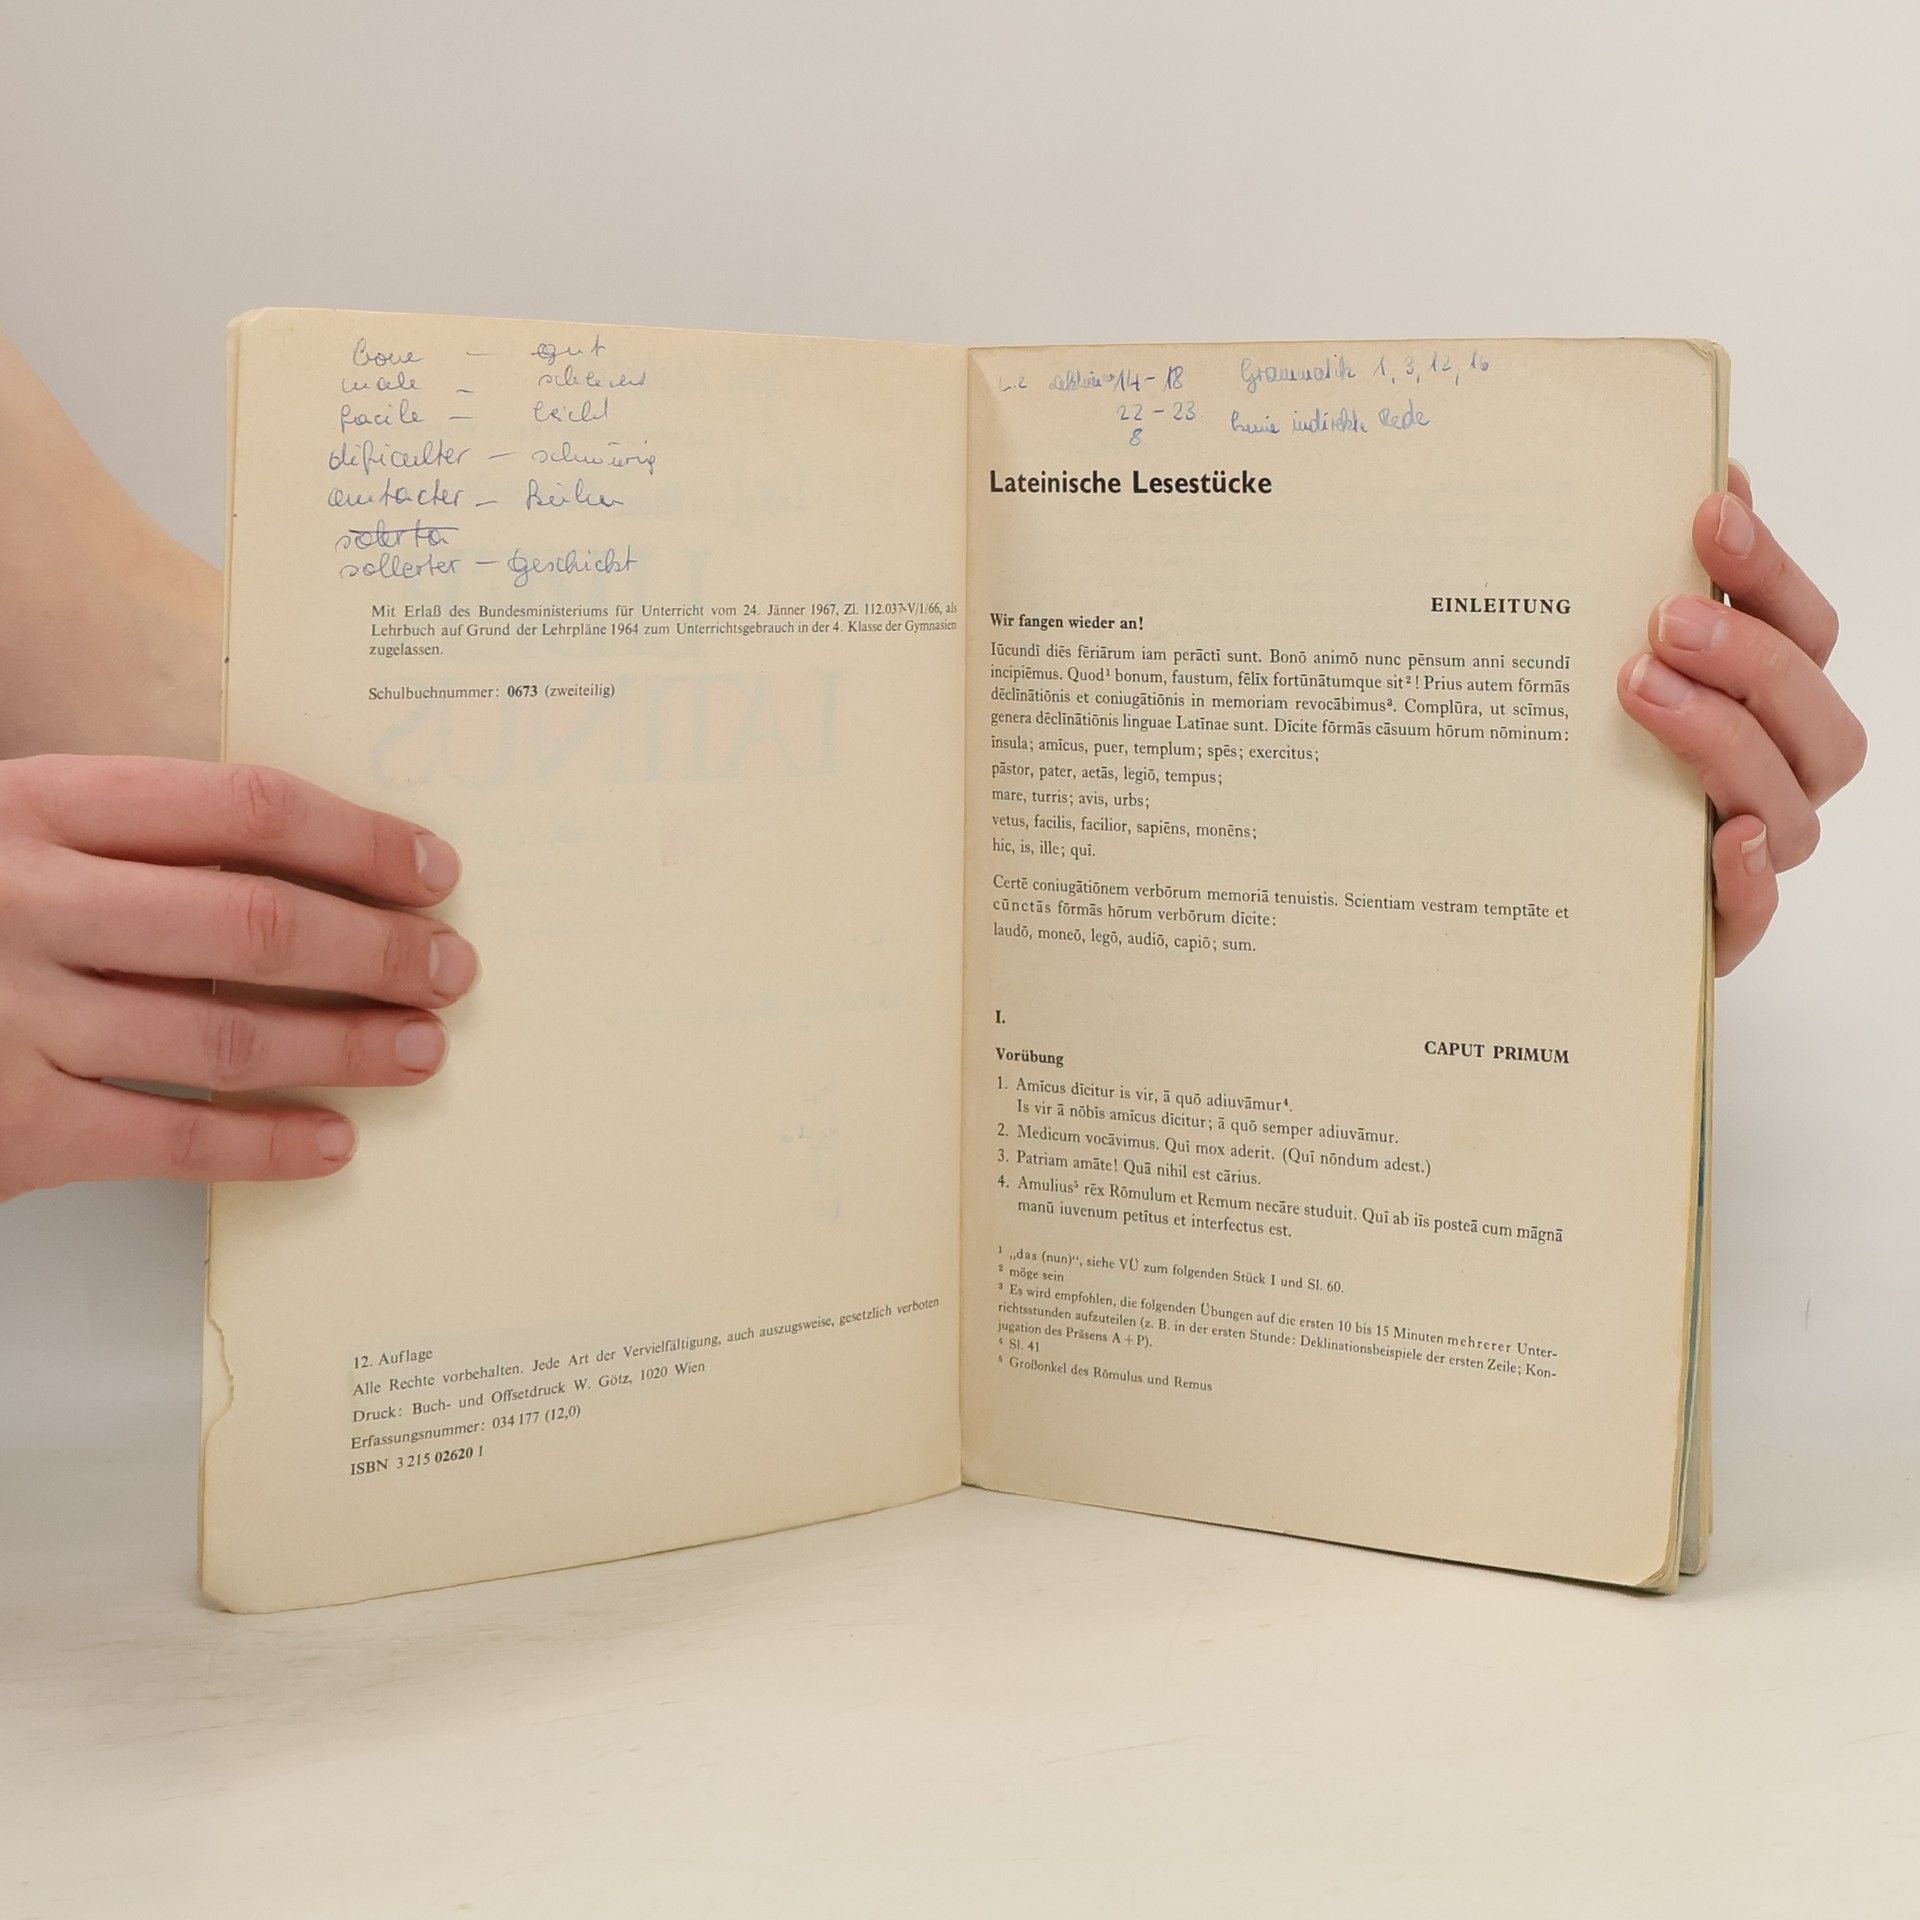 bone — gut
male — schlecht
facile — leicht
dificulter — schwierig
audacter — kühn
sollerter — geschickt
Mit Erlaß des Bundesministeriums für Unterricht vom 24. Jänner 1967, Zl. 112.037-V/1/66, als
Lehrbuch auf Grund der Lehrpläne 1964 zum Unterrichtsgebrauch in der 4. Klasse der Gymnasien
zugelassen.
Schulbuchnummer: 0673 (zweiteilig)
12. Auflage
Alle Rechte vorbehalten. Jede Art der Vervielfältigung, auch auszugsweise, gesetzlich verboten
Druck: Buch- und Offsetdruck W. Götz, 1020 Wien
Erfassungsnummer: 034 177 (12,0)
ISBN 3 215 02620 1
14 – 18 Grammatik 1, 3, 12, 16
22 – 23. keine indirekte Rede
8
Lateinische Lesestücke
EINLEITUNG
Wir fangen wieder an!
Iūcundī diēs fēriārum iam perāctī sunt. Bonō animō nunc pēnsum annī secundī
incipiēmus. Quod¹ bonum, faustum, fēlix fortūnātumque sit²! Prius autem fōrmās
dēclīnātiōnis et coniugātiōnis in memoriam revocābimus³. Complūra, ut scīmus,
genera dēclīnātiōnis linguae Latīnae sunt. Dīcite fōrmās cāsuum hōrum nōminum:
īnsula; amīcus, puer, templum; spēs; exercitus;
pāstor, pater, aetās, legiō, tempus;
mare, turris; avis, urbs;
vetus, facilis, facilior, sapiēns, monēns;
hic, is, ille; quī.
Certē coniugātiōnem verbōrum memoriā tenuistis. Scientiam vestram temptāte et
cūnctās fōrmās hōrum verbōrum dīcite:
laudō, moneō, legō, audiō, capiō; sum.
I.
CAPUT PRIMUM
Vorübung
1. Amīcus dīcitur is vir, ā quō adiuvāmur⁴.
Is vir ā nōbīs amīcus dīcitur; ā quō semper adiuvāmur.
2. Medicum vocāvimus. Quī mox aderit. (Quī nōndum adest.)
3. Patriam amāte! Quā nihil est cārius.
4. Amulius⁵ rēx Rōmulum et Remum necāre studuit. Quī ab iīs posteā cum māgnā
manū iuvenum petītus et interfectus est.
¹ „das (nun)“, siehe VÜ zum folgenden Stück I und Sl. 60.
² möge sein
³ Es wird empfohlen, die folgenden Übungen auf die ersten 10 bis 15 Minuten mehrerer Unter-
richtsstunden aufzuteilen (z. B. in der ersten Stunde: Deklinationsbeispiele der ersten Zeile; Kon-
jugation des Präsens A + P).
⁴ Sl. 41
⁵ Großonkel des Rōmulus und Remus